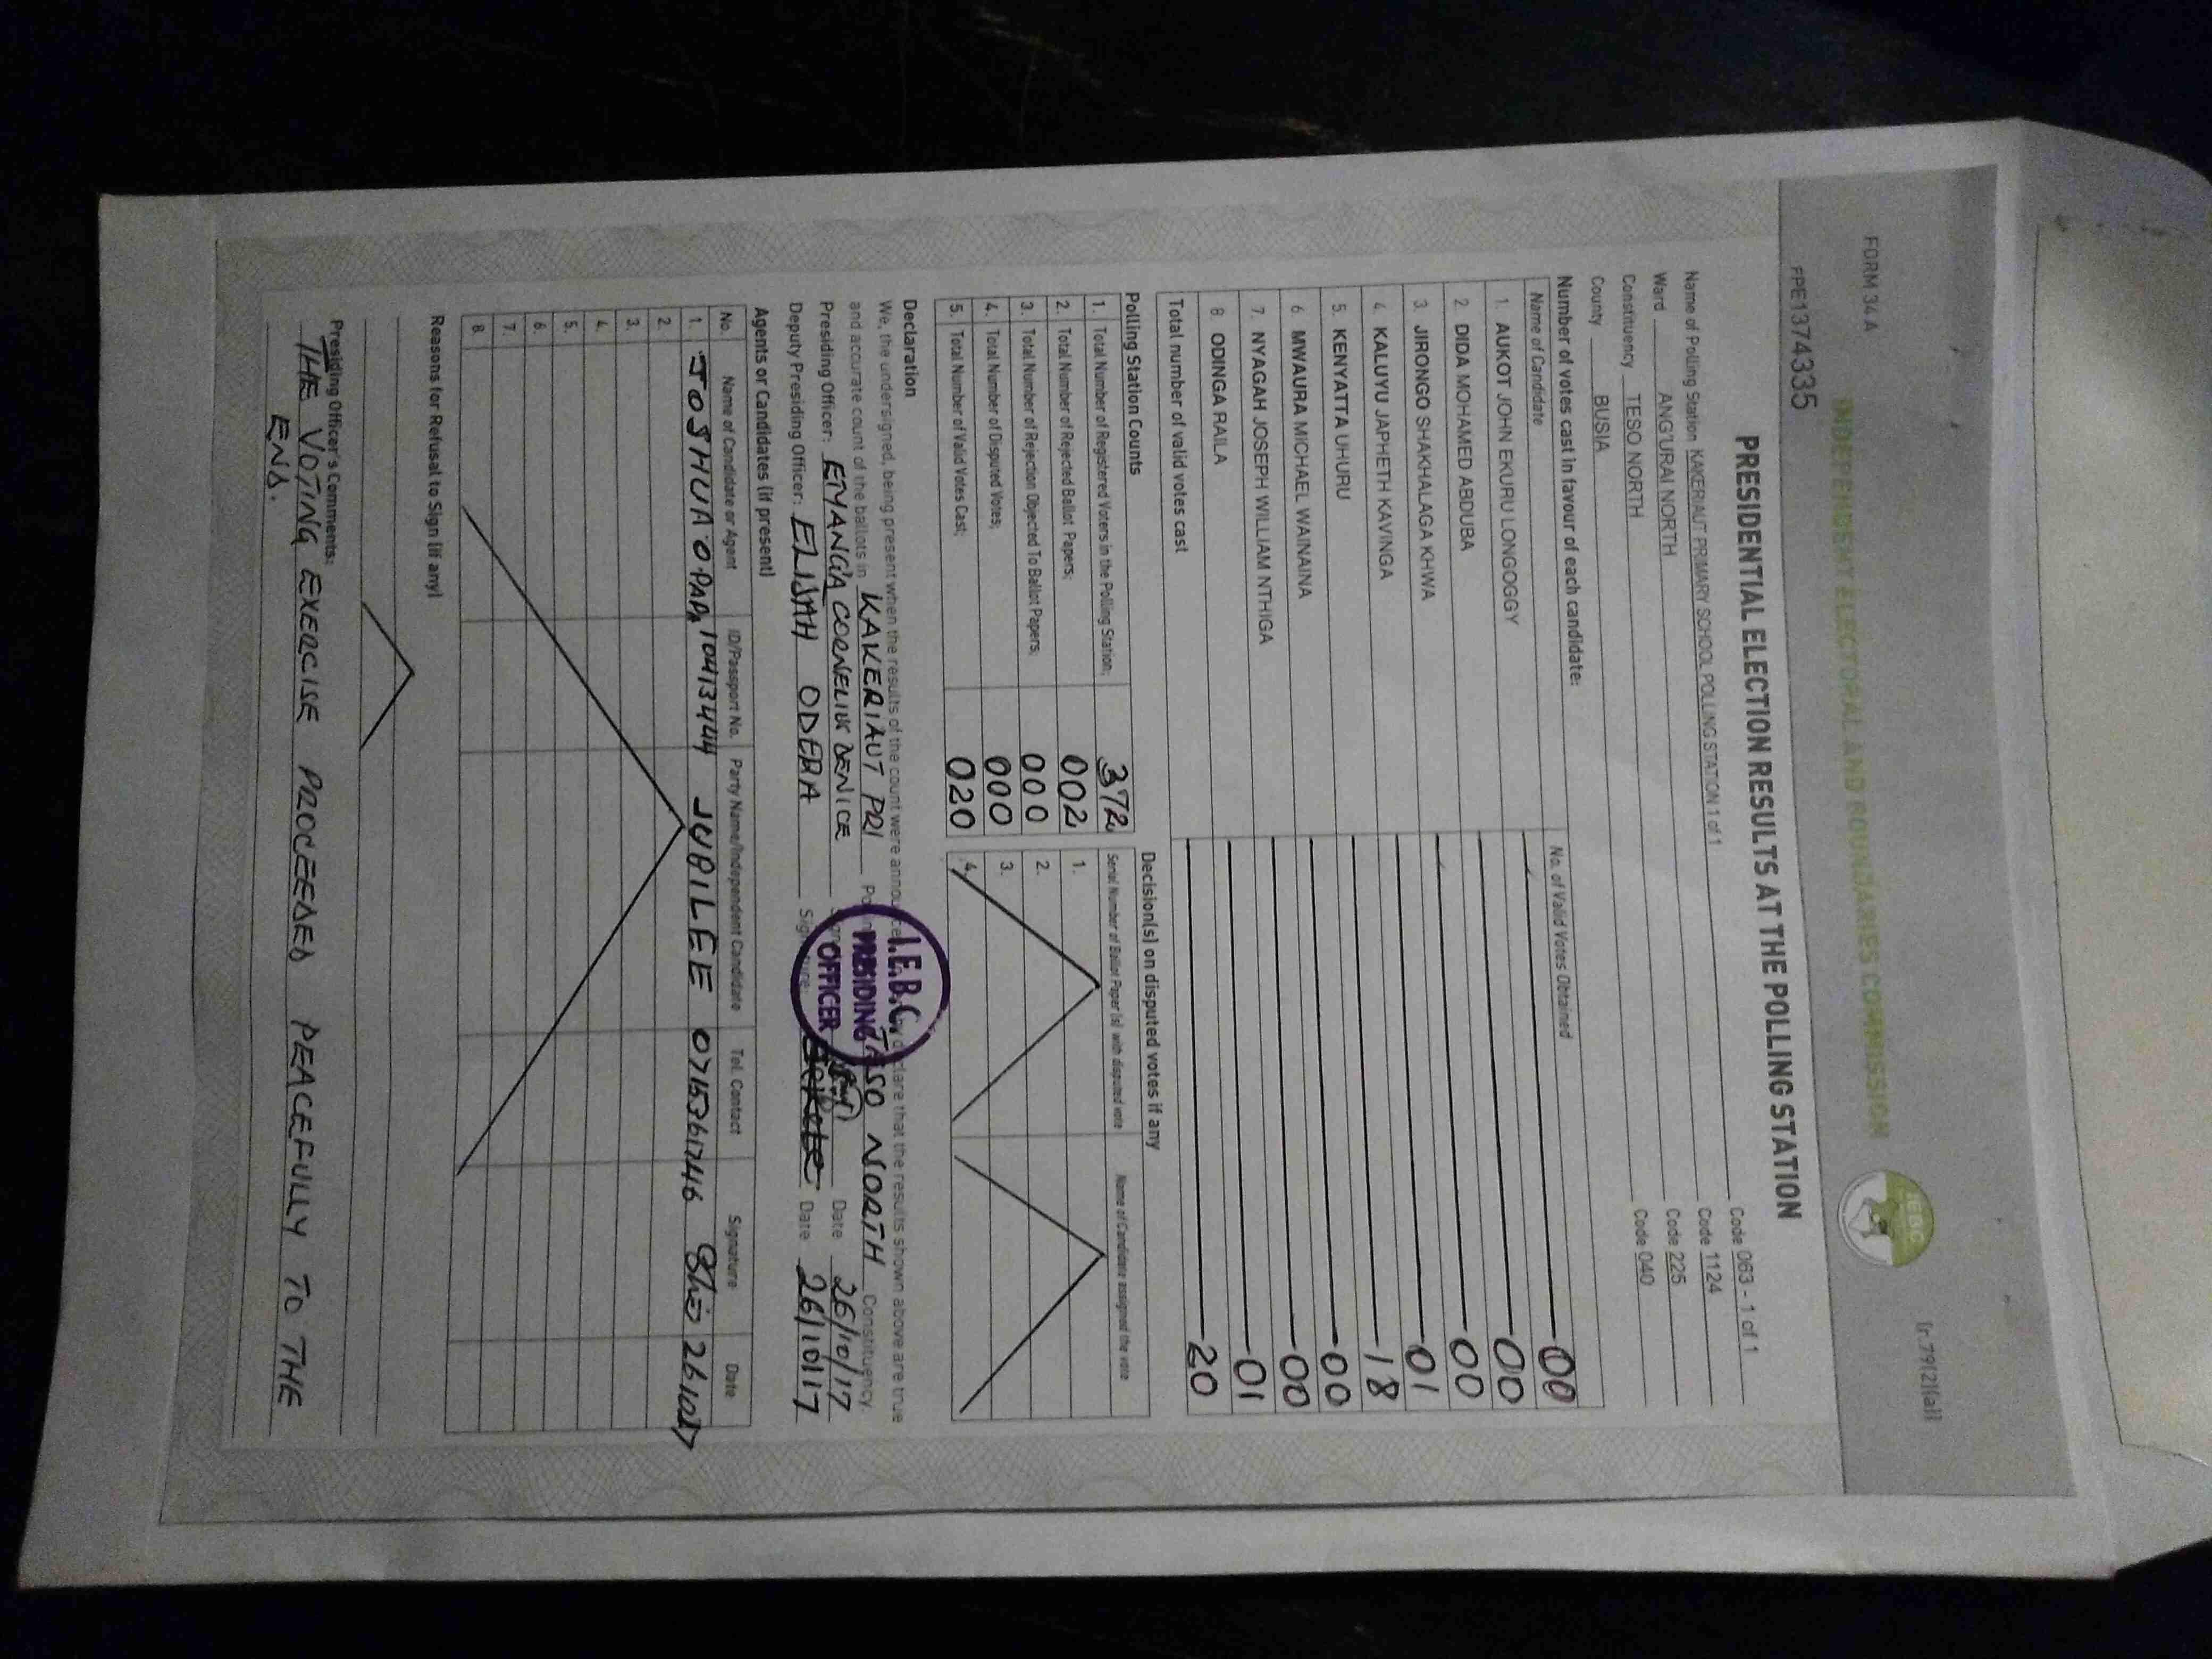 FORM 34 A
[r.79(2)(a)]
INDEPENDENT ELECTORAL AND BOUNDARIES COMMISSION
IEBC
FPE1374335
PRESIDENTIAL ELECTION RESULTS AT THE POLLING STATION
Name of Polling Station KAKERIAUT PRIMARY SCHOOL POLLING STATION 1 of 1 Code 063 - 1 of 1
Ward ANG'URAI NORTH Code 1124
Constituency TESO NORTH Code 225
County BUSIA Code 040
Number of votes cast in favour of each candidate:
Name of Candidate No. of Valid Votes Obtained
1. AUKOT JOHN EKURU LONGOGGY 00
2. DIDA MOHAMED ABDUBA 00
3. JIRONGO SHAKHALAGA KHWA 00
4. KALUYU JAPHETH KAVINGA 01
5. KENYATTA UHURU 18
6. MWAURA MICHAEL WAINAINA 00
7. NYAGAH JOSEPH WILLIAM NTHIGA 00
8. ODINGA RAILA 01
Total number of valid votes cast 20
Polling Station Counts
1. Total Number of Registered Voters in the Polling Station; 372
2. Total Number of Rejected Ballot Papers; 002
3. Total Number of Rejection Objected To Ballot Papers; 000
4. Total Number of Disputed Votes; 000
5. Total Number of Valid Votes Cast; 020
Decision(s) on disputed votes if any
Serial Number of Ballot Paper (s) with disputed vote Name of Candidate assigned the vote
1.
2.
3.
4.
Declaration
We, the undersigned, being present when the results of the count were announced, declare that the results shown above are true
and accurate count of the ballots in KAKERIAUT PRI TESO NORTH Constituency.
Presiding Officer: EMANG'A CORNELIUS DENICE Date 26/10/17
Deputy Presiding Officer: ELIJAH ODERA Signature: Date 26/10/17
I.E.B.C.
PRESIDING
OFFICER
Agents or Candidates (if present)
No. Name of Candidate or Agent ID/Passport No. Party Name/Independent Candidate Tel. Contact Signature Date
1. JOSHUA O. PAPA 10413444 JUBILEE 0715361746
2.
3.
4.
5.
6.
7.
8.
Reasons for Refusal to Sign (if any)
Presiding Officer's Comments:
THE VOTING EXERCISE PROCEEDED PEACEFULLY TO THE
END.